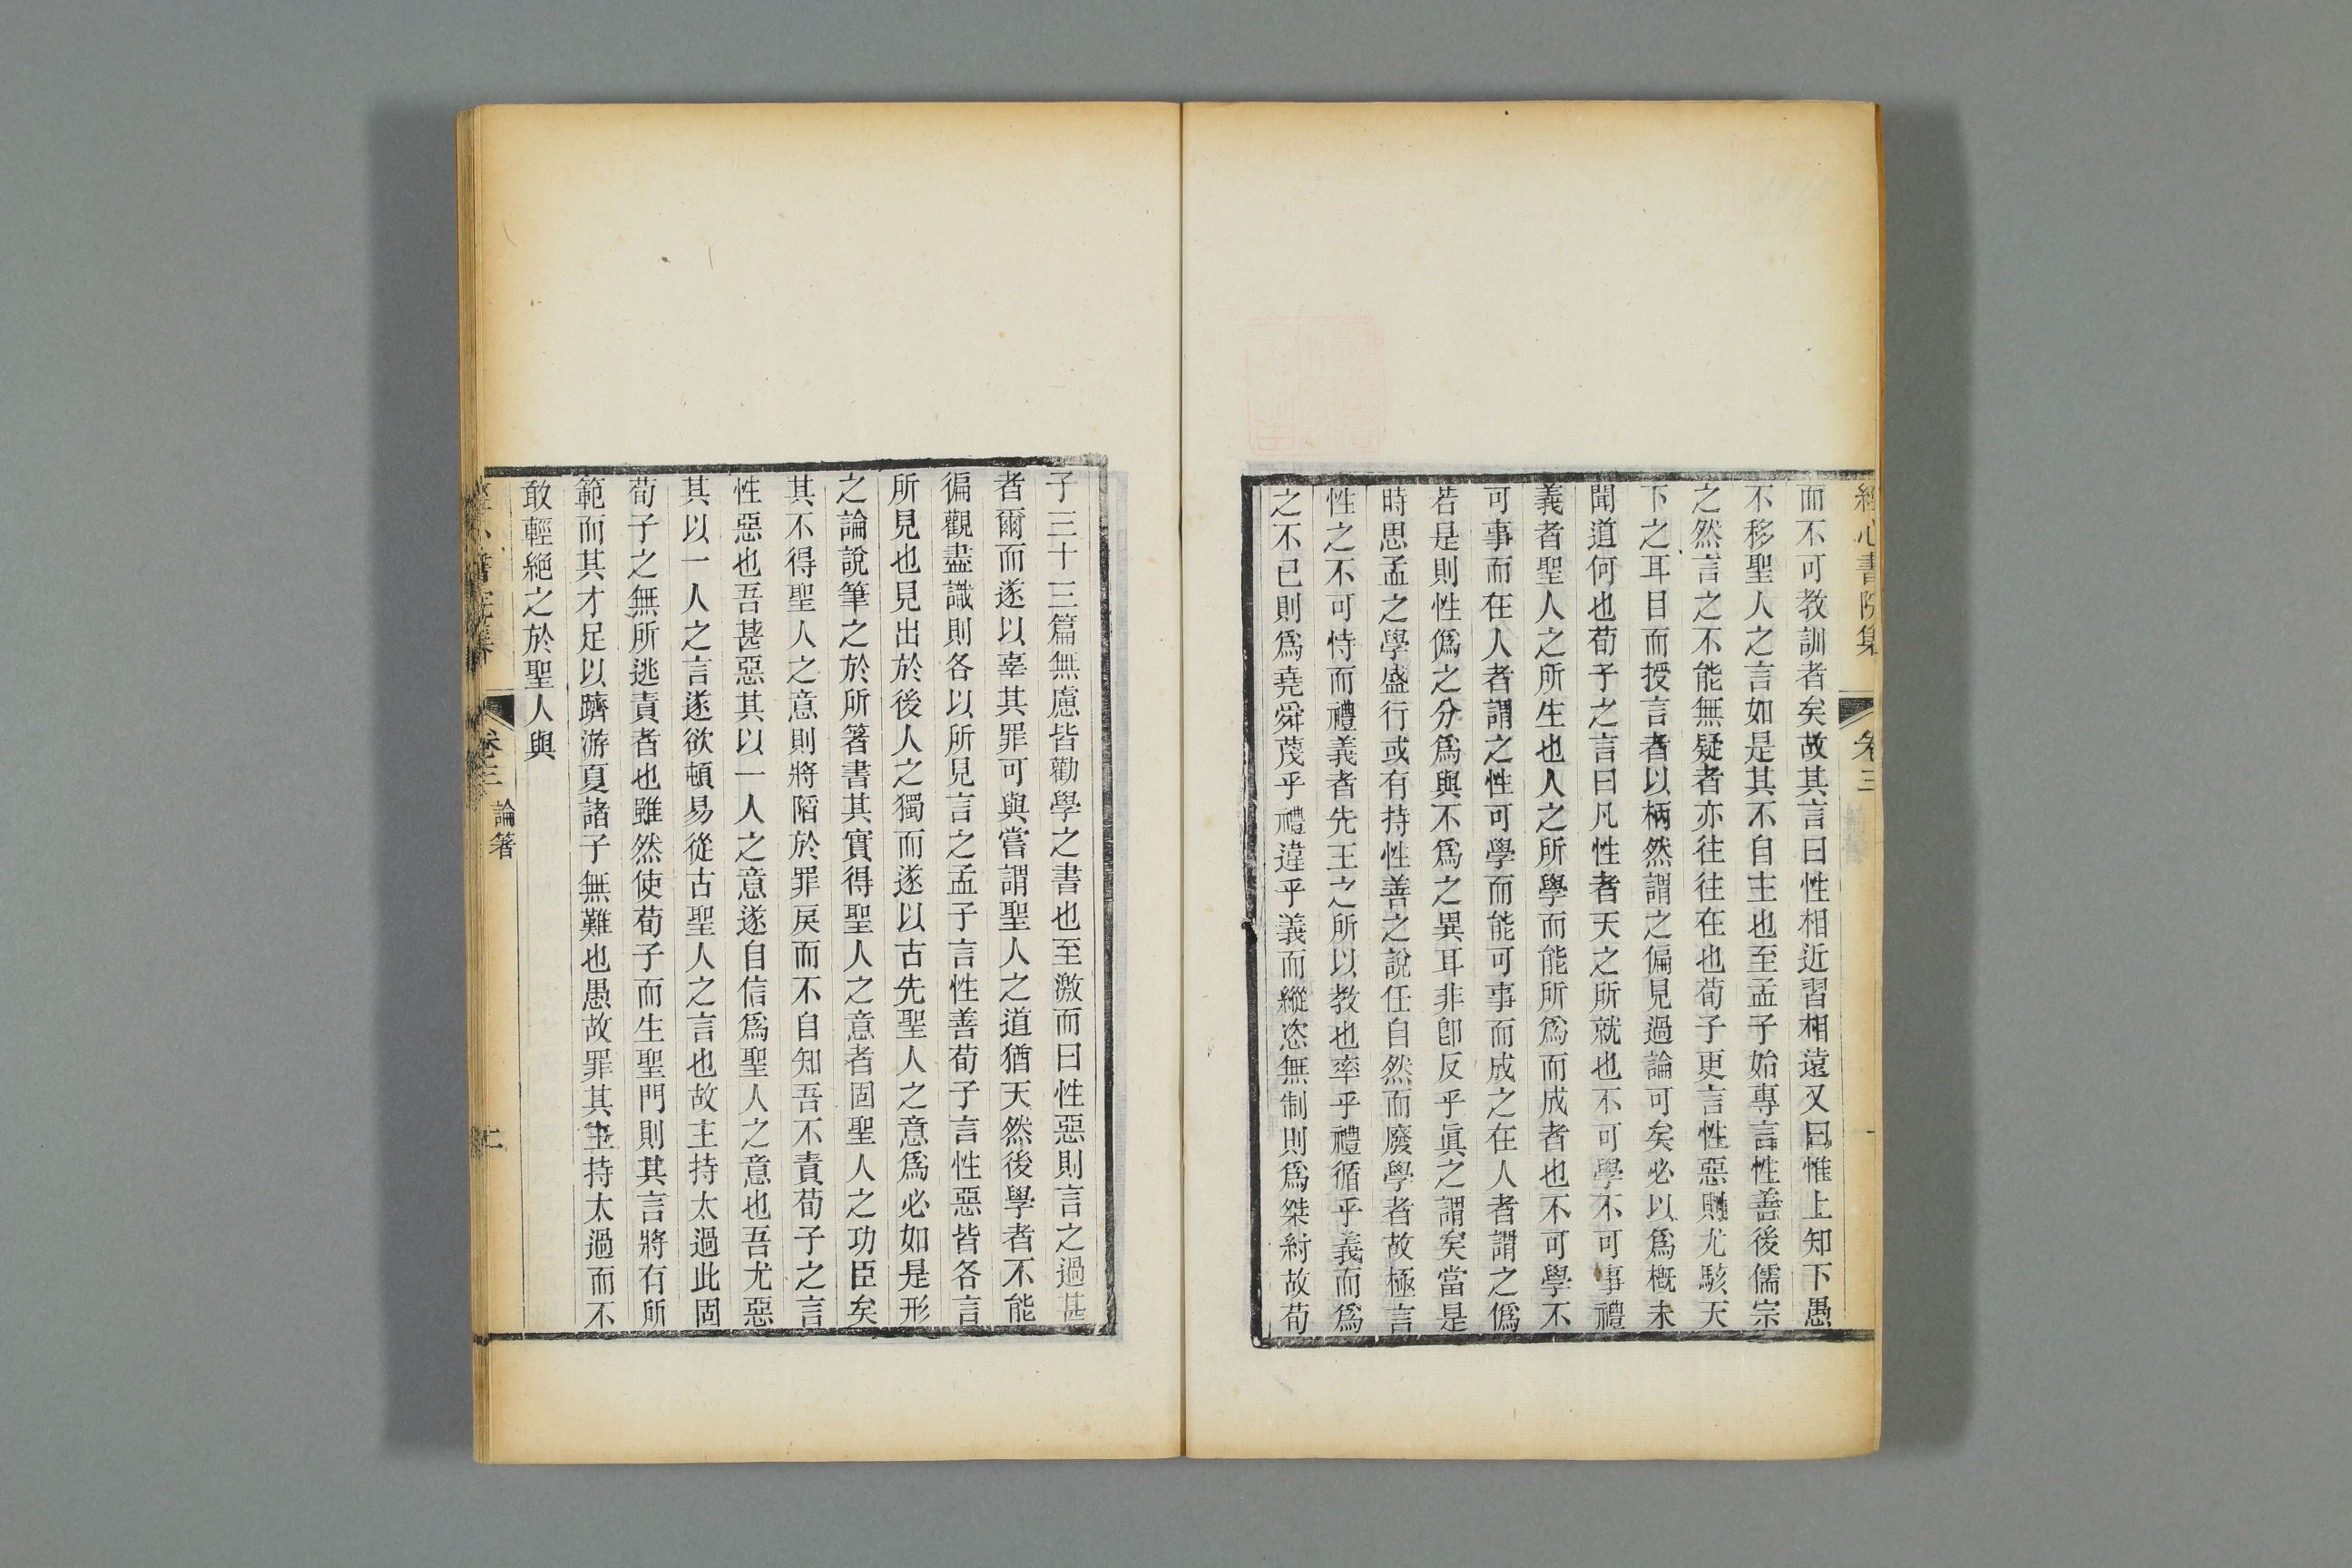 經心書院集 卷三
而不可教訓者矣故其言曰性相近習相遠又曰惟上知下愚
不移聖人之言如是其不自主也至孟子始專言性善後儒宗
之然言之不能無疑者亦往往在也荀子更言性惡則尤駭天
下之耳目而授言者以柄然謂之偏見過論可矣必以爲槪未
聞道何也荀子之言曰凡性者天之所就也不可學不可事禮
義者聖人之所生也人之所學而能所爲而成者也不可學不
可事而在人者謂之性可學而能可事而成之在人者謂之僞
若是則性僞之分爲與不爲之異耳非卽反乎眞之謂矣當是
時思孟之學盛行或有持性善之說任自然而廢學者故極言
性之不可恃而禮義者先王之所以教也率乎禮循乎義而爲
之不已則爲堯舜蔑乎禮違乎義而縱恣無制則爲桀紂故荀
子三十三篇無慮皆勸學之書也至激而曰性惡則言之過甚
者爾而遂以辜其罪可與嘗謂聖人之道猶天然後學者不能
徧觀盡識則各以所見言之孟子言性善荀子言性惡皆各言
所見也見出於後人之獨而遂以古先聖人之意爲必如是形
之論說筆之於所箸書其實得聖人之意者固聖人之功臣矣
其不得聖人之意則將陷於罪戾而不自知吾不責荀子之言
性惡也吾甚惡其以一人之意遂自信爲聖人之意也吾尤惡
其以一人之言遂欲頓易從古聖人之言也故主持太過此固
荀子之無所逃責者也雖然使荀子而生聖門則其言將有所
範而其才足以躋游夏諸子無難也愚故罪其主持太過而不
敢輕絕之於聖人與
書院集 卷三 論箸